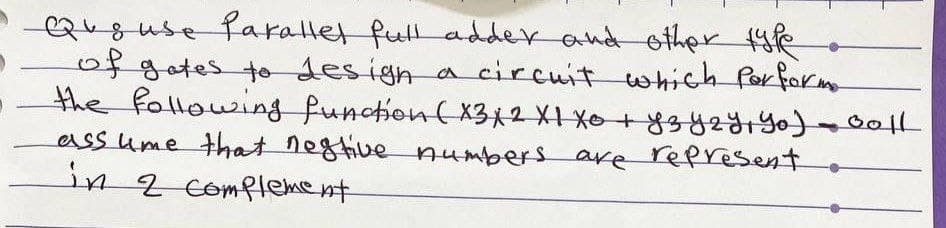 Q4 : use Parallel full adder and other type
of gates to design a circuit which Perform
the following function ( X3X2 X1 X0 + y3 y2 y1 y0 ) - 0011
assume that negtive numbers are represent
in 2 complement